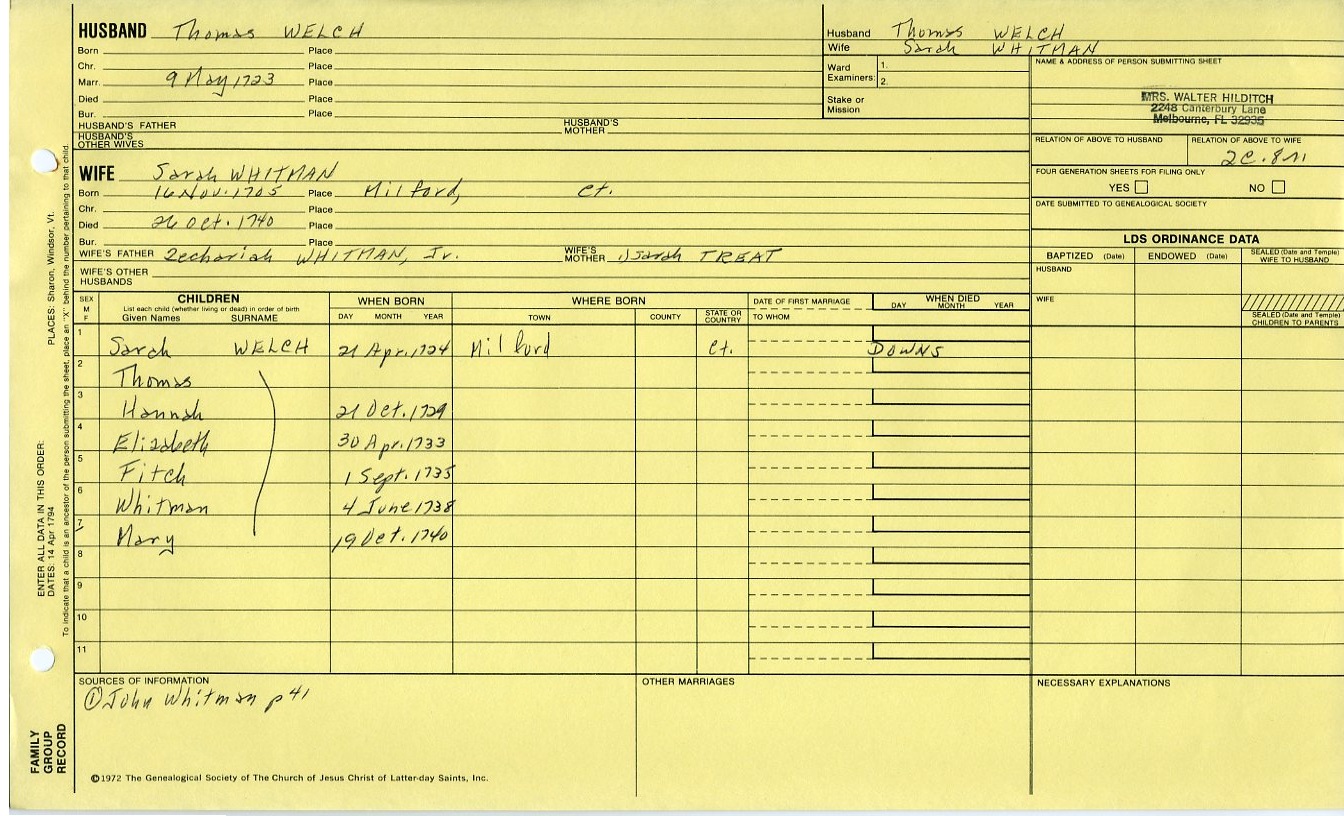 HUSBAND Thomas WELCH
Born Place
Chr. Place
Marr. 9 May 1723 Place
Died Place
Bur. Place
HUSBAND'S FATHER HUSBAND'S MOTHER
HUSBAND'S OTHER WIVES
Husband Thomas WELCH
Wife Sarah WHITMAN
Ward Examiners: 1.
2.
Stake or Mission
NAME & ADDRESS OF PERSON SUBMITTING SHEET
MRS. WALTER HILDITCH
2248 Canterbury Lane
Melbourne, FL 32935
RELATION OF ABOVE TO HUSBAND RELATION OF ABOVE TO WIFE
2C.8r1
FOUR GENERATION SHEETS FOR FILING ONLY
YES NO
DATE SUBMITTED TO GENEALOGICAL SOCIETY
WIFE Sarah WHITMAN
Born 16 Nov. 1705 Place Milford, Ct.
Chr. Place
Died 26 Oct. 1740 Place
Bur. Place
WIFE'S FATHER Zechariah WHITMAN, Jr. WIFE'S MOTHER Sarah TREAT
WIFE'S OTHER HUSBANDS
LDS ORDINANCE DATA
BAPTIZED (Date) ENDOWED (Date) SEALED (Date and Temple) WIFE TO HUSBAND
HUSBAND
WIFE
SEALED (Date and Temple) CHILDREN TO PARENTS
SEX M F
CHILDREN
List each child (whether living or dead) in order of birth
Given Names SURNAME
WHEN BORN
DAY MONTH YEAR
WHERE BORN
TOWN COUNTY STATE OR COUNTRY
DATE OF FIRST MARRIAGE
TO WHOM
WHEN DIED
DAY MONTH YEAR
1 Sarah WELCH 21 Apr. 1724 Milford Ct. DOWNS
2 Thomas
3 Hannah 21 Oct. 1729
4 Elizabeth 30 Apr. 1733
5 Fitch 1 Sept. 1735
6 Whitman 4 June 1738
7 Mary 19 Oct. 1740
8
9
10
11
SOURCES OF INFORMATION
① John Whitman p 41
OTHER MARRIAGES
NECESSARY EXPLANATIONS
©1972 The Genealogical Society of The Church of Jesus Christ of Latter-day Saints, Inc.
FAMILY
GROUP
RECORD
ENTER ALL DATA IN THIS ORDER:
DATES: 14 Apr 1794
PLACES: Sharon, Windsor, Vt.
To indicate that a child is an ancestor of the person submitting the sheet, place an "X" behind the number pertaining to that child.